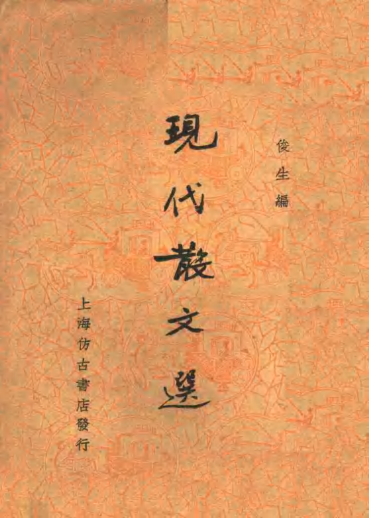 俊生編
現代散文選
上海仿古書店發行